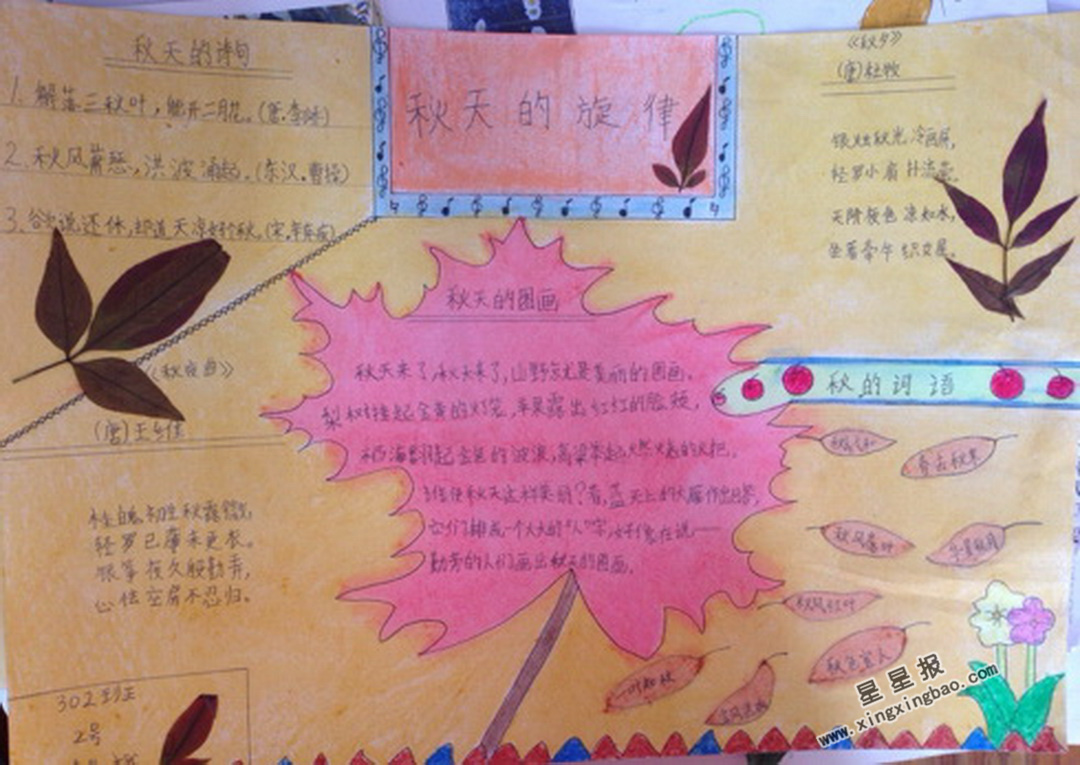 秋天的诗句
1. 解落三秋叶，能开二月花。(唐.李峤)
2. 秋风萧瑟，洪波涌起。(东汉.曹操)
3. 欲说还休，却道天凉好个秋。(宋.辛弃疾)
秋天的旋律
《秋夕》
(唐)杜牧
银烛秋光冷画屏，
轻罗小扇扑流萤。
天阶夜色凉如水，
坐看牵牛织女星。
《秋夜曲》
(唐)王维
桂魄初生秋露微，
轻罗已薄未更衣。
银筝夜久殷勤弄，
心怯空房不忍归。
秋天的图画
秋天来了，秋天来了，山野就是美丽的图画。
梨树挂起金黄的灯笼，苹果露出红红的脸颊，
稻海翻起金色的波浪，高粱举起燃烧的火把。
谁使秋天这样美丽？看，蓝天上的大雁作出回答，
它们排成一个大大的"人"字，好像在说——
勤劳的人们画出秋天的图画。
秋的词语
春去秋来
秋风落叶
秋风红叶
秋色宜人
一叶知秋
302班
2号
星星报
www.xingxingbao.com